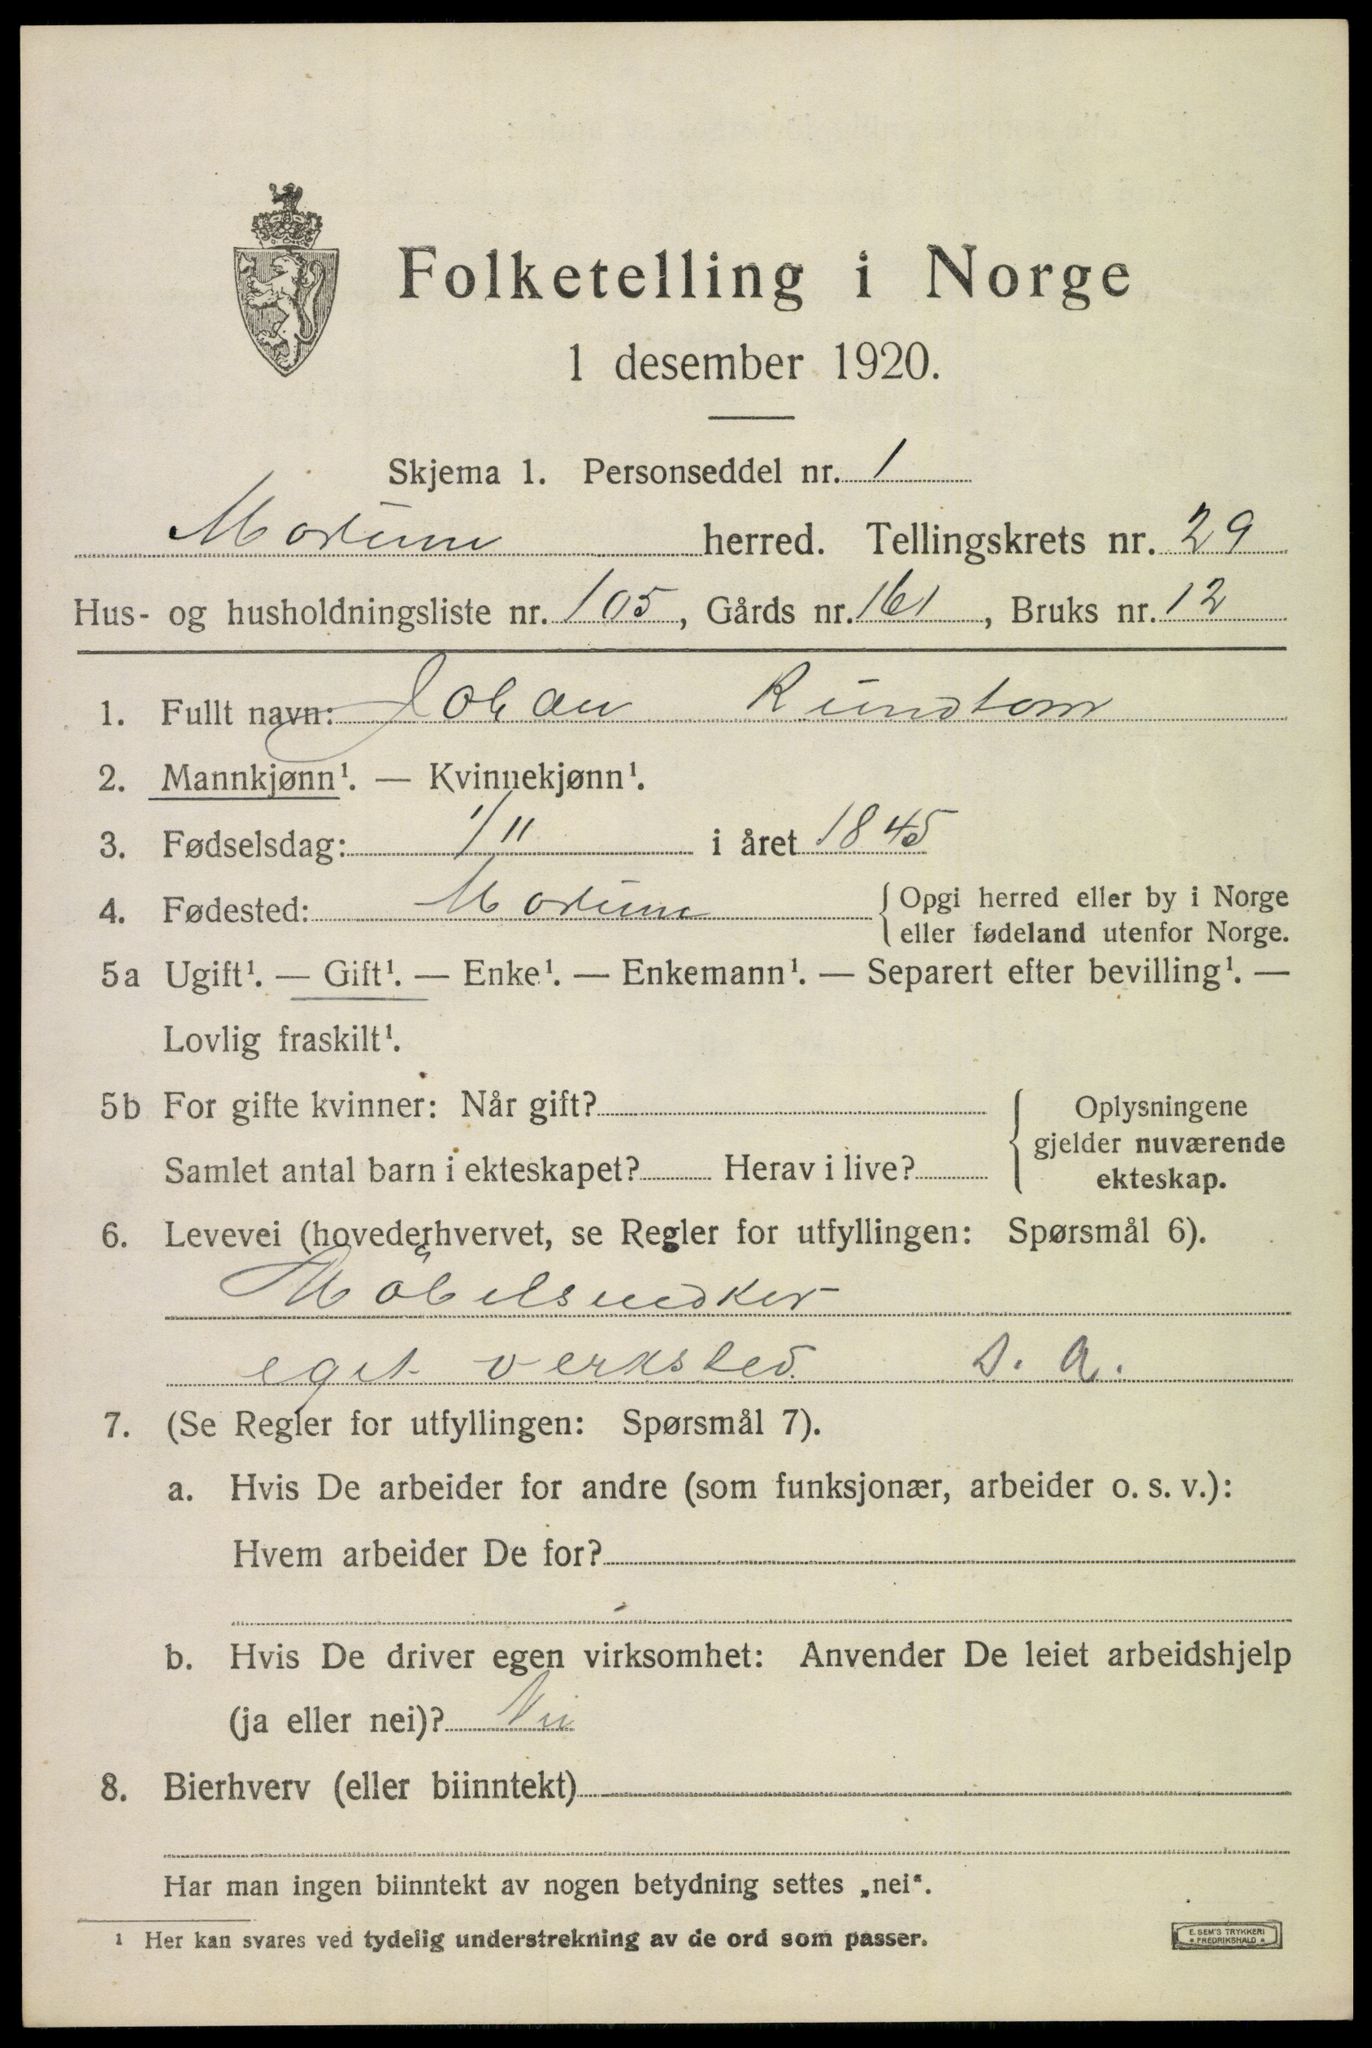 Folketelling i Norge
1 desember 1920.
Skjema 1. Personseddel nr. 1
Modum herred. Tellingskrets nr. 29
Hus- og husholdningsliste nr. 105, Gårds nr. 161, Bruks nr. 12
1. Fullt navn: Johan Rundtom
2. Mannkjønn¹. — Kvinnekjønn¹.
3. Fødselsdag: 1/11 i året 1845
4. Fødested: Modum { Opgi herred eller by i Norge
eller fødeland utenfor Norge.
5a Ugift¹. — Gift¹. — Enke¹. — Enkemann¹. — Separert efter bevilling¹. —
Lovlig fraskilt¹.
5b For gifte kvinner: Når gift?
Samlet antal barn i ekteskapet? Herav i live?
{ Oplysningene
gjelder nuværende
ekteskap.
6. Levevei (hovederhvervet, se Regler for utfyllingen: Spørsmål 6).
Möbelsnedker
eget verksted. S. A.
7. (Se Regler for utfyllingen: Spørsmål 7).
a. Hvis De arbeider for andre (som funksjonær, arbeider o. s. v.):
Hvem arbeider De for?
b. Hvis De driver egen virksomhet: Anvender De leiet arbeidshjelp
(ja eller nei)? Nei
8. Bierhverv (eller biinntekt)
Har man ingen biinntekt av nogen betydning settes „nei".
¹ Her kan svares ved tydelig understrekning av de ord som passer.
E. SEM'S TRYKKERI
* FREDRIKSHALD *